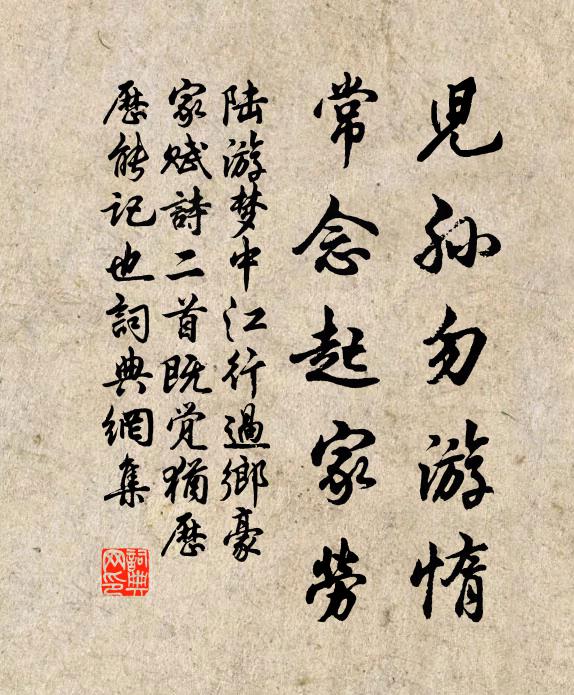 兒孙勿游惰
常念起家勞
陆游梦中江行過鄉豪
家赋詩二首既觉猶歷
歷能记也詞典網集
詞典
网印